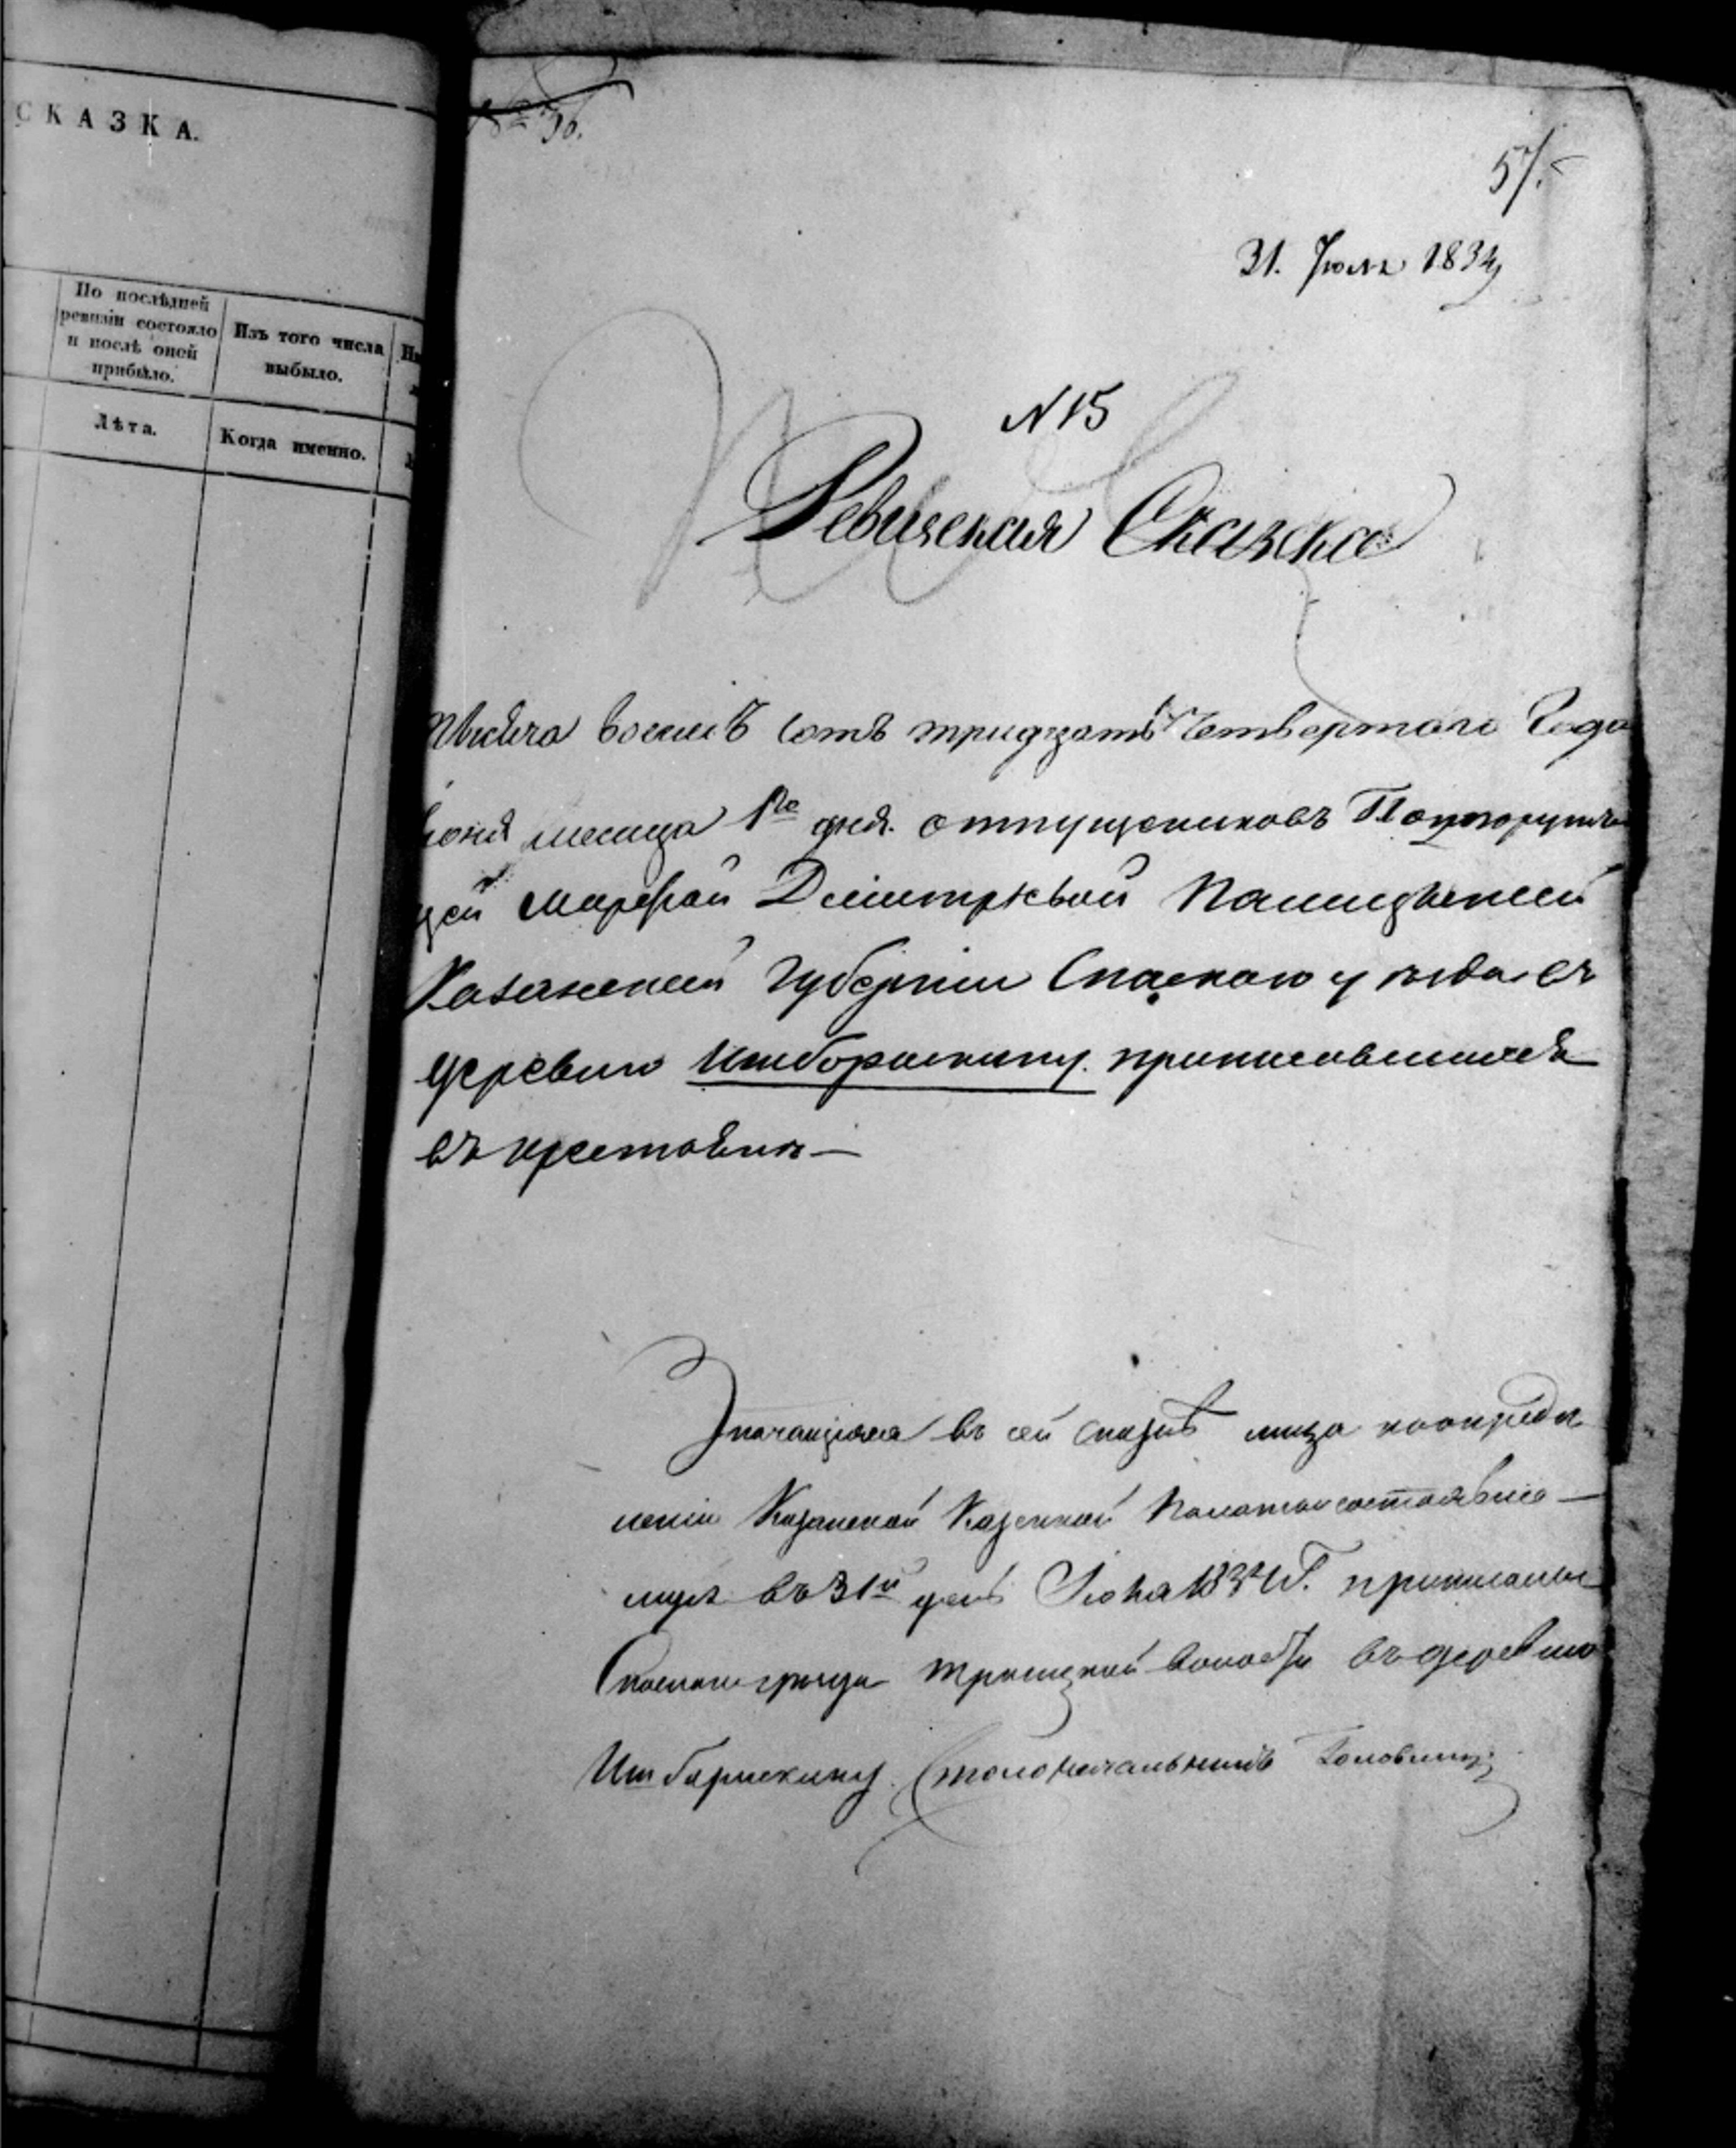 СКАЗКА.
По послѣдней
ревизіи состояло
и послѣ оной
прибыло.
Изъ того числа
выбыло.
Лѣта.
Когда именно.
57.
31. Іюля 1834
N 15
Ревиская Сказка
Тысеча восемь сотъ тридцать четвертаго Года
Іюня месеца 1го дня. отпущениковъ Поруч
цей Марфой Дмитріевой
Казанской Губерніи Спаскаго уезда въ
деревню Иштборискину. приписавшихся
въ крестьяне
Значащіяся въ сей сказке лица по опреде
леніи Казанской Казенной Палатой состоявше
муся въ 31й день Іюля 1834 Г. приписаны
Спаскаго уезда Троицкой волости въ деревню
Иштбарискину. Столоначальникъ Головин